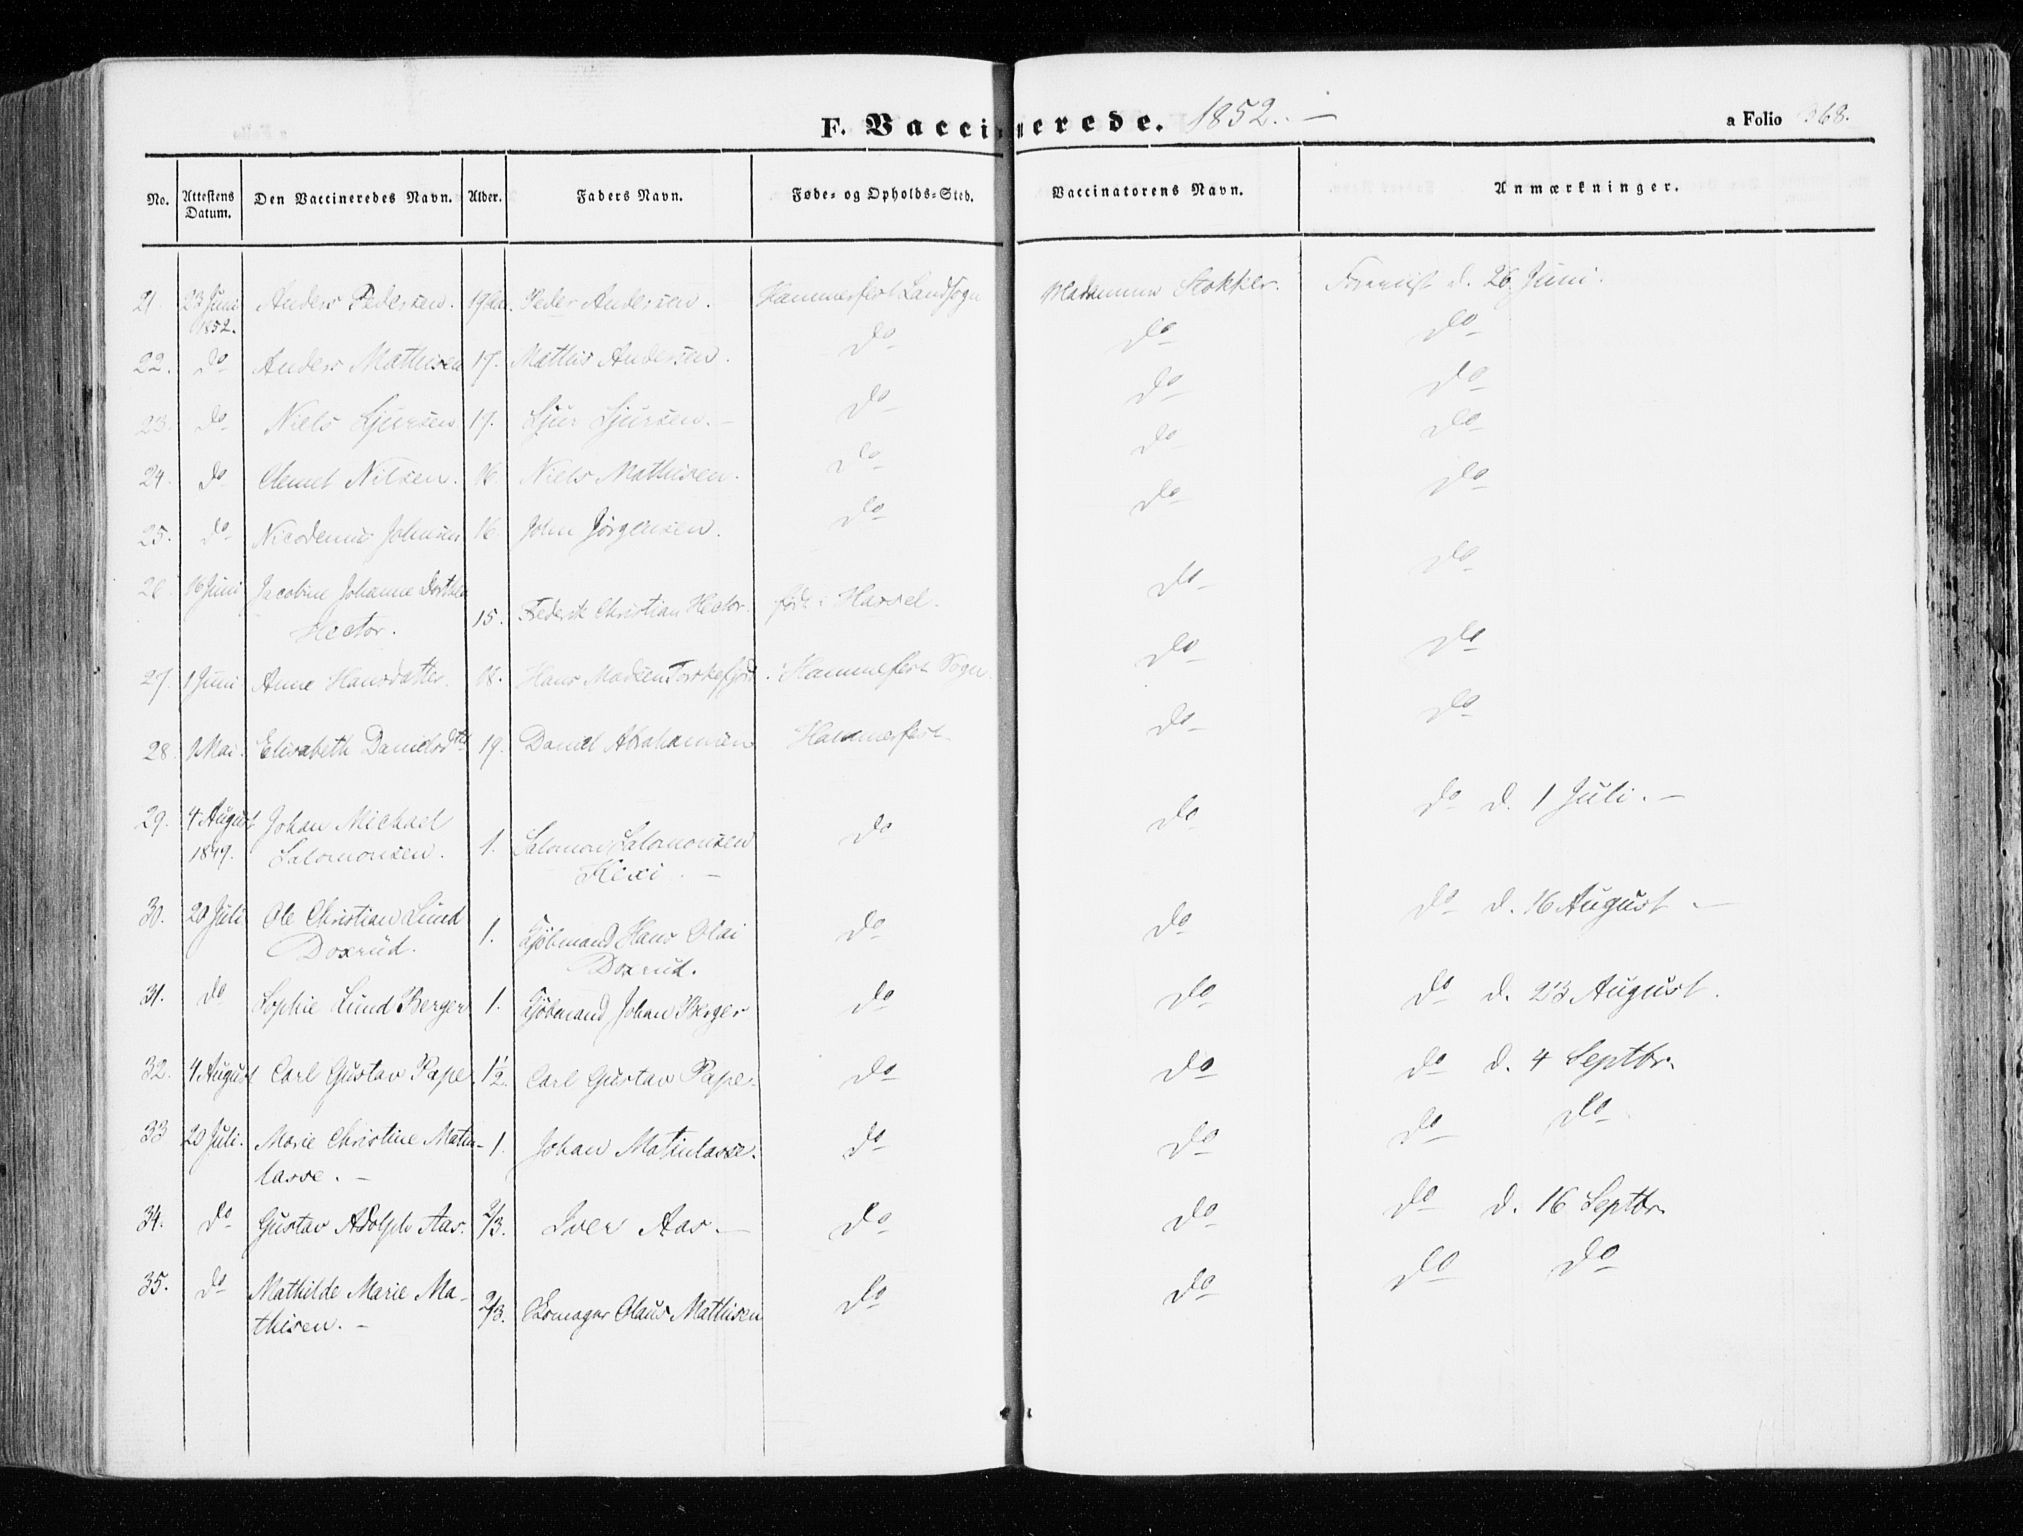 F. Vaccinerede. 1852. –
a Folio 368.
No. Attestens Datum. Den Vaccineredes Navn. Alder. Faders Navn. Føde- og Opholds-Sted. Vaccinatorens Navn. Anmærkninger.
21 23 Juni 1852. Anders Pedersen. Peder Andersen. Hammerfest Landsogn Stokker. d. 26 Juni.
22. do Anders Mathisen 17. Mathis Andersen. do do do
23. do Niels Sjursen 17. Sjur Sjursen. – do do do
24. do Clemet Nilsen. 16. Niels Mathisen. do do do
25. do Nicodemus Johnsen 16. John Jørgensen. do do do
26 16 Juni Jacobine Johanne Dorthea
Hector. 15. Frederik Christian Hector. født i Hassel. do do
27. 1 Juni Anne Hansdatter. 18. Hans Madsen Torskefjord. i Hammerfest Sogn. do do
28. Mai. Elisabeth Danielsdtr 19. Daniel Abrahamsen Hammerfest do do
29. 4 August 1849. Johan Michael
Salomonsen. 1. Salomon Salomonsen
Kexi. – do do do d. 1 Juli. –
30. 20 Juli Ole Christian Lund
Doxrud. 1. Kjøbmand Hans Olai
Doxrud. do do do d. 16 August –
31. do Sophie Lund Berger 1. Kjøbmand Johan Berger do do do d. 23 August.
32. 4 August Carl Gustav Pape. 1½. Carl Gustav Pape. do do do d. 4 Septbr.
33 20 Juli. Marie Christine Matin-
lasse. – 1. Johan Matinlasse. do do do do
34. do Gustav Adolph Aas. 2/3. Iver Aas. – do do do d. 16 Septbr.
35. do Mathilde Marie Ma-
thisen. – 2/3. Skomager Olaus Mathisen do do do do